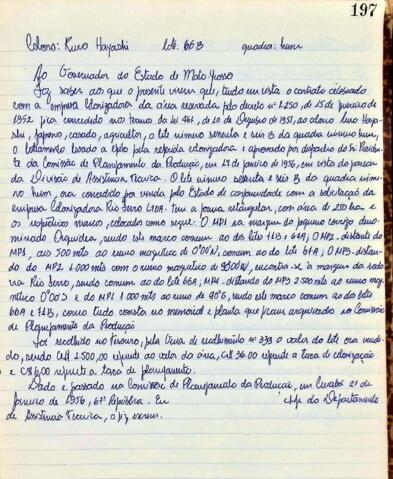 197
Colono: Kuro Hayashi lote: 66B quadra: hum
Ao Governador do Estado de Mato Grosso
Faz saber ao que o presente virem que, tendo em vista o contrato celebrado
com a empresa Colonizadora da área reservada pelo decreto nº 1.250, de 25 de Janeiro de
1952 fica concedido nos termos da lei 461, de 10 de Dezembro de 1951, ao colono Kuro Haya-
shi, Japones, casado, agricultor, o lote número sessenta e seis B da quadra número hum,
o loteamento levado a efeito pela referida colonizadora e aprovado por despacho do Sr. Presiden-
te da Comissão de Planejamento da Produção, em 19 de Janeiro de 1956, em vista do parecer
da Divisão de Assistência Tecnica. O lote número sessenta e seis B da quadra núme-
ro hum, ora concedido por venda pelo Estado de conformidade com a solicitação da
empresa Colonizadora Rio Ferro LTDA. Tem a forma retangular, com área de 250 ha e
os respectivos marcos, colocados como segue: O MP1 na margem do pequeno corrego deno-
minado Orquidea, sendo este marco comum ao dos lotes 71B e 67A; O MP2- distante do
MP1, ais 500 mts ao rumo magnetico de 0º00'N, comum ao lote 67A; O MP3- distan-
do do MP2 1.000 mts com o rumo magnetico de 90º00'W, encontra-se à margem da rodo-
via Rio Ferro, sendo comum ao do lote 66A; MP4- distando do MP3 2.500 mts ao rumo mag-
nético 0º00'S e do MP1 1.000 mts ao rumo de 90º E, sendo este marco comum ao do lote
66A e 71B, como tudo consta no memorial e planta que ficam arquivados na Comissão
de Planejamento da Produção
Foi recolhido no tesouro, pela Guia de recolhimento nº 233 o valor do lote ora vendi-
do, sendo CR$ 2.500,00 referente ao valor da área, CR$ 36.00 referente a taxa de colonização
e CR$ 6,00 referente a taxa de planejamento.
Dado e passado na Comissão de Planejamento da Produção, em Cuiabá 21 de
Janeiro de 1956, 67º República. Eu chefe do Departamento
de Assistência Tecnica, o fiz escrever.